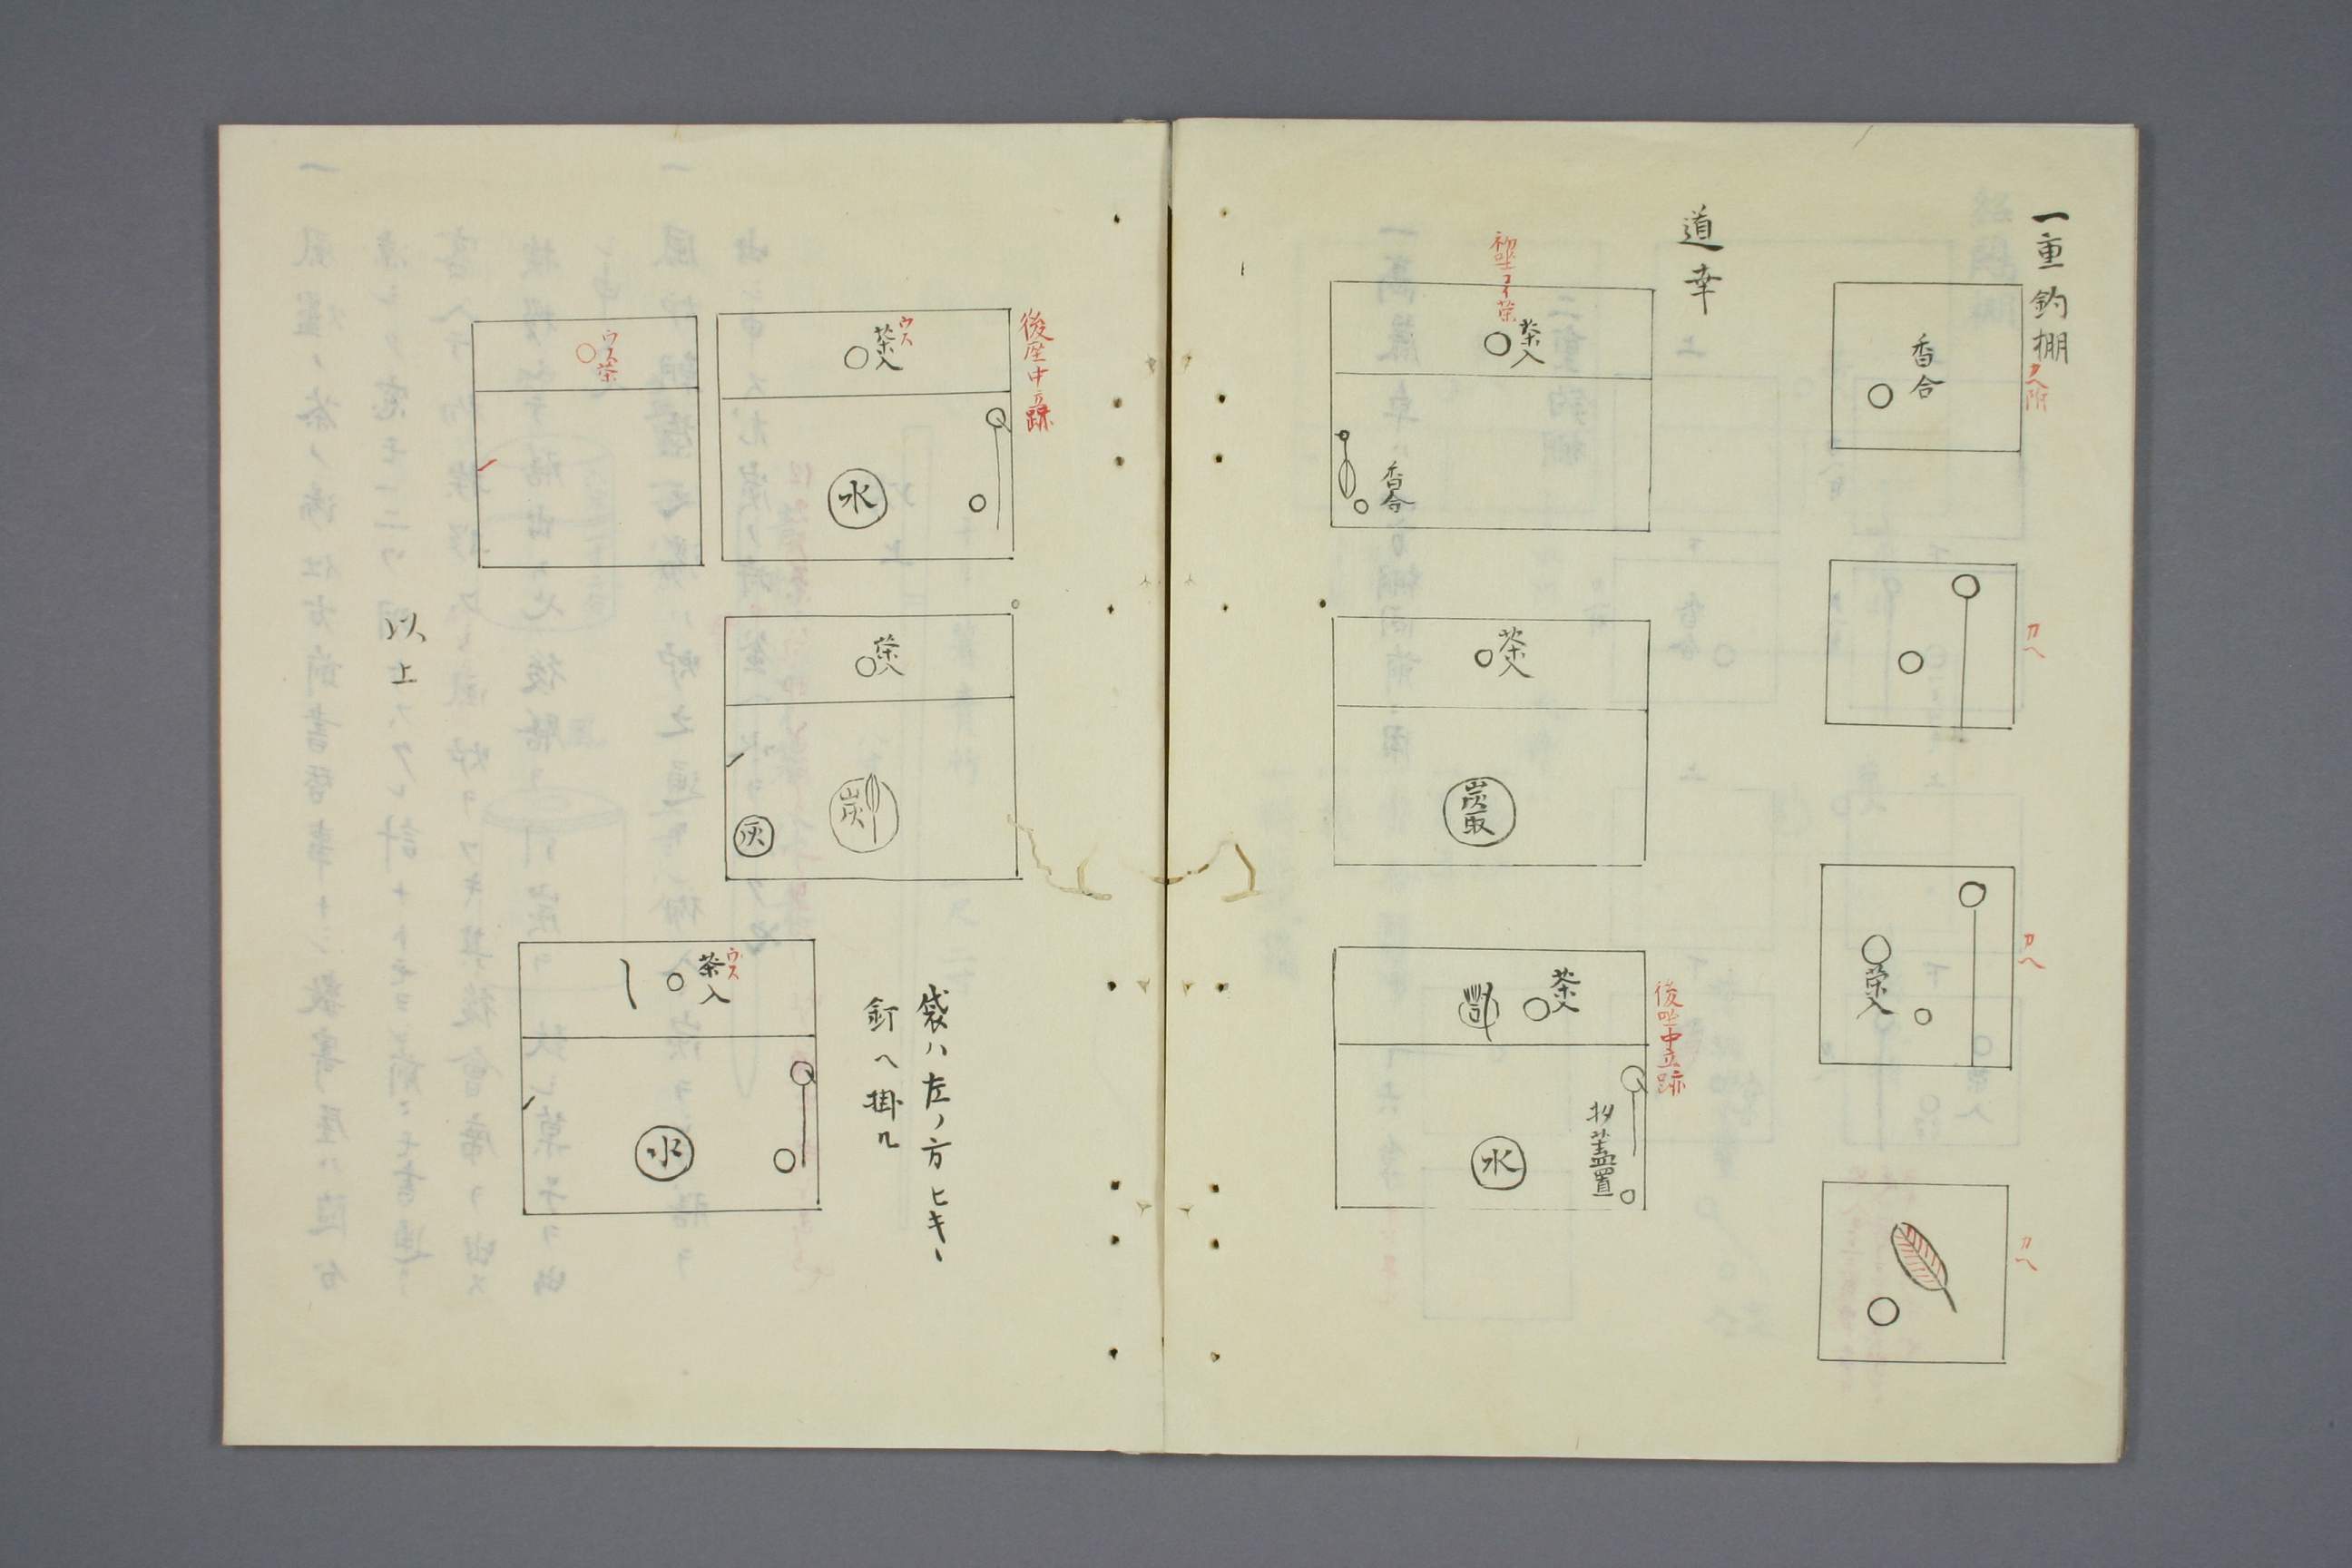 一重釣棚
香合
カヘ
カヘ
茶入
カヘ
道幸
茶入
香合
茶入
炭取
後坐中立跡
茶入
蓋置
水
後座中立跡
ウス
茶入
水
ウス茶
茶入
炭
灰
袋ハ左ノ方ヒキヽ
釘ヘ掛ル
ウス
茶入
水
以上